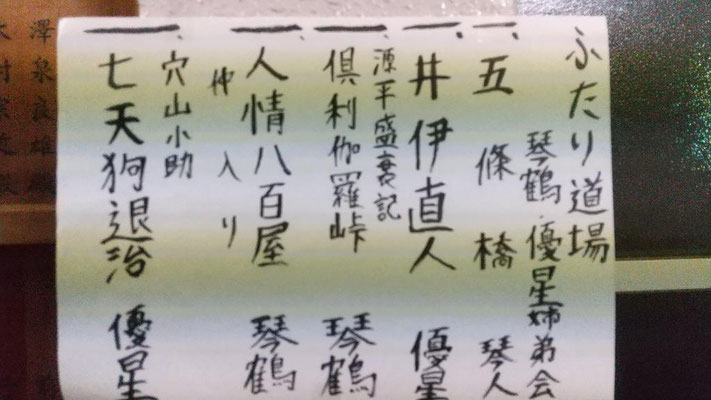 ふたり道場
琴鶴・優星姉弟会
一、五條橋 琴人
一、井伊直人 優星
源平盛衰記
一、倶利伽羅峠 琴鶴
一、人情八百屋 琴鶴
仲入り
穴山小助
一、七天狗退治 優星
澤泉良雄